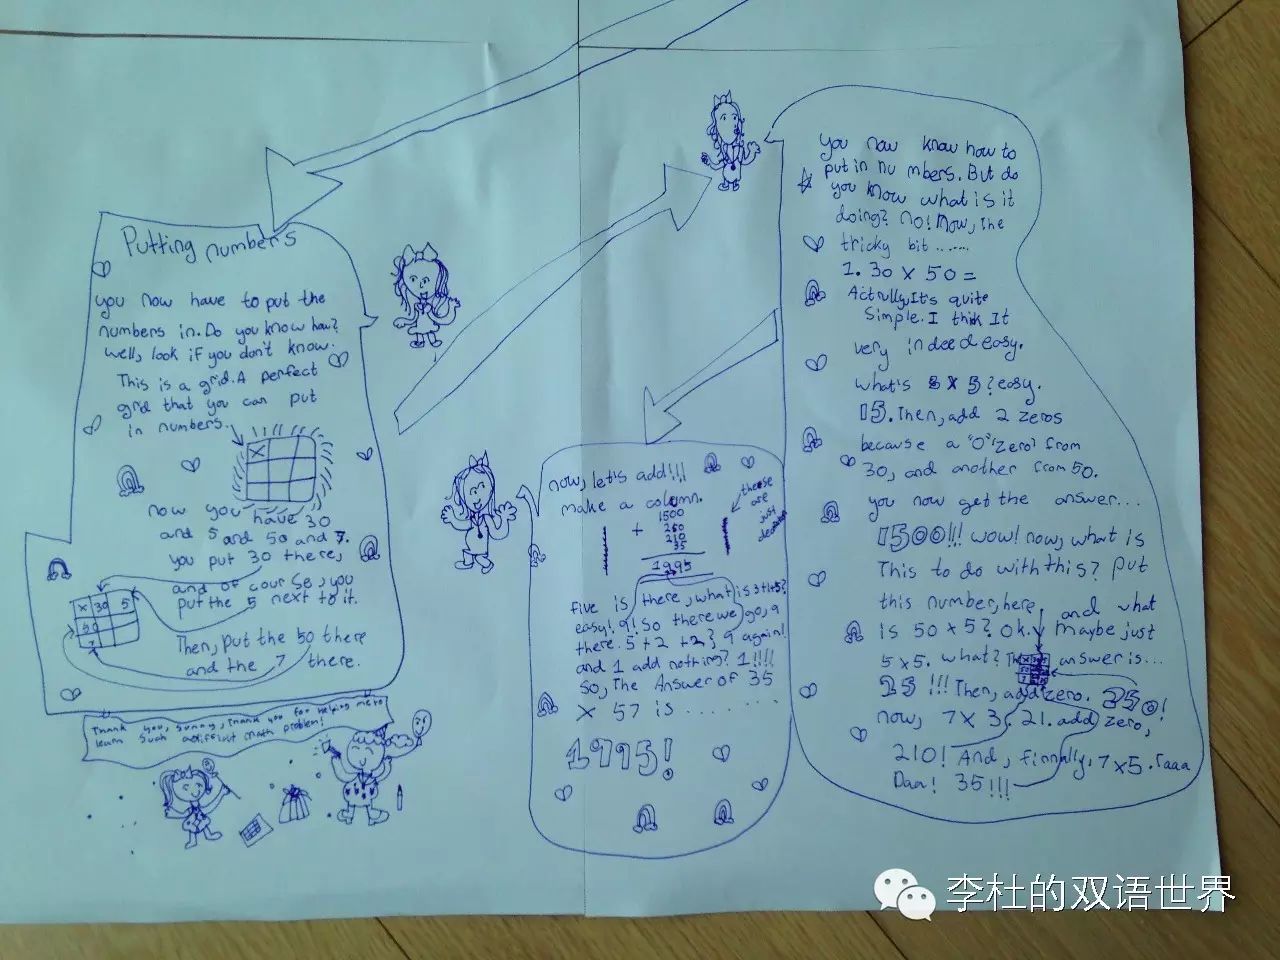 Putting numbers
you now have to put the
numbers in. Do you know how?
well, look if you don't know.
This is a grid. A perfect
grid that you can put
in numbers.
X
now you have 30
and 5 and 50 and 7.
you put 30 there,
and of course, you
put the 5 next to it.
X 30 5
50
7
Then, put the 50 there
and the 7 there.
Thank you, Sunny, Thank you for helping me to
learn such a difficult math problem!
you now know how to
put in nu mbers. But do
you know what is it
doing? no! Now, the
tricky bit.......
1. 30 x 50 =
Actrully, It's quite
Simple. I think It
very indeed easy.
what's 3 X 5? easy.
15. Then, add 2 zeros
because a "0" (zero) from
30, and another from 50.
you now get the answer...
1500!!! wow! now, what is
This to do with this? put
this number, here, and what
is 50 x 5? Ok. Maybe just
5 x 5. what? The answer is...
25 !!! Then, add zero. 250!
now, 7 X 3, 21. add zero,
210! And, finnally, 7 x 5. Taaa
Daa! 35!!!
now, let's add!!!
make a column.
these
are
just
1500
+ 250
210
35
1995
five is there, what is 3+1+5?
easy! 9! So there we go, 9
there. 5 + 2 + 2? 9 again!
and 1 add nothing? 1!!!!
So, The Answer of 35
x 57 is ........
1995!
李杜的双语世界